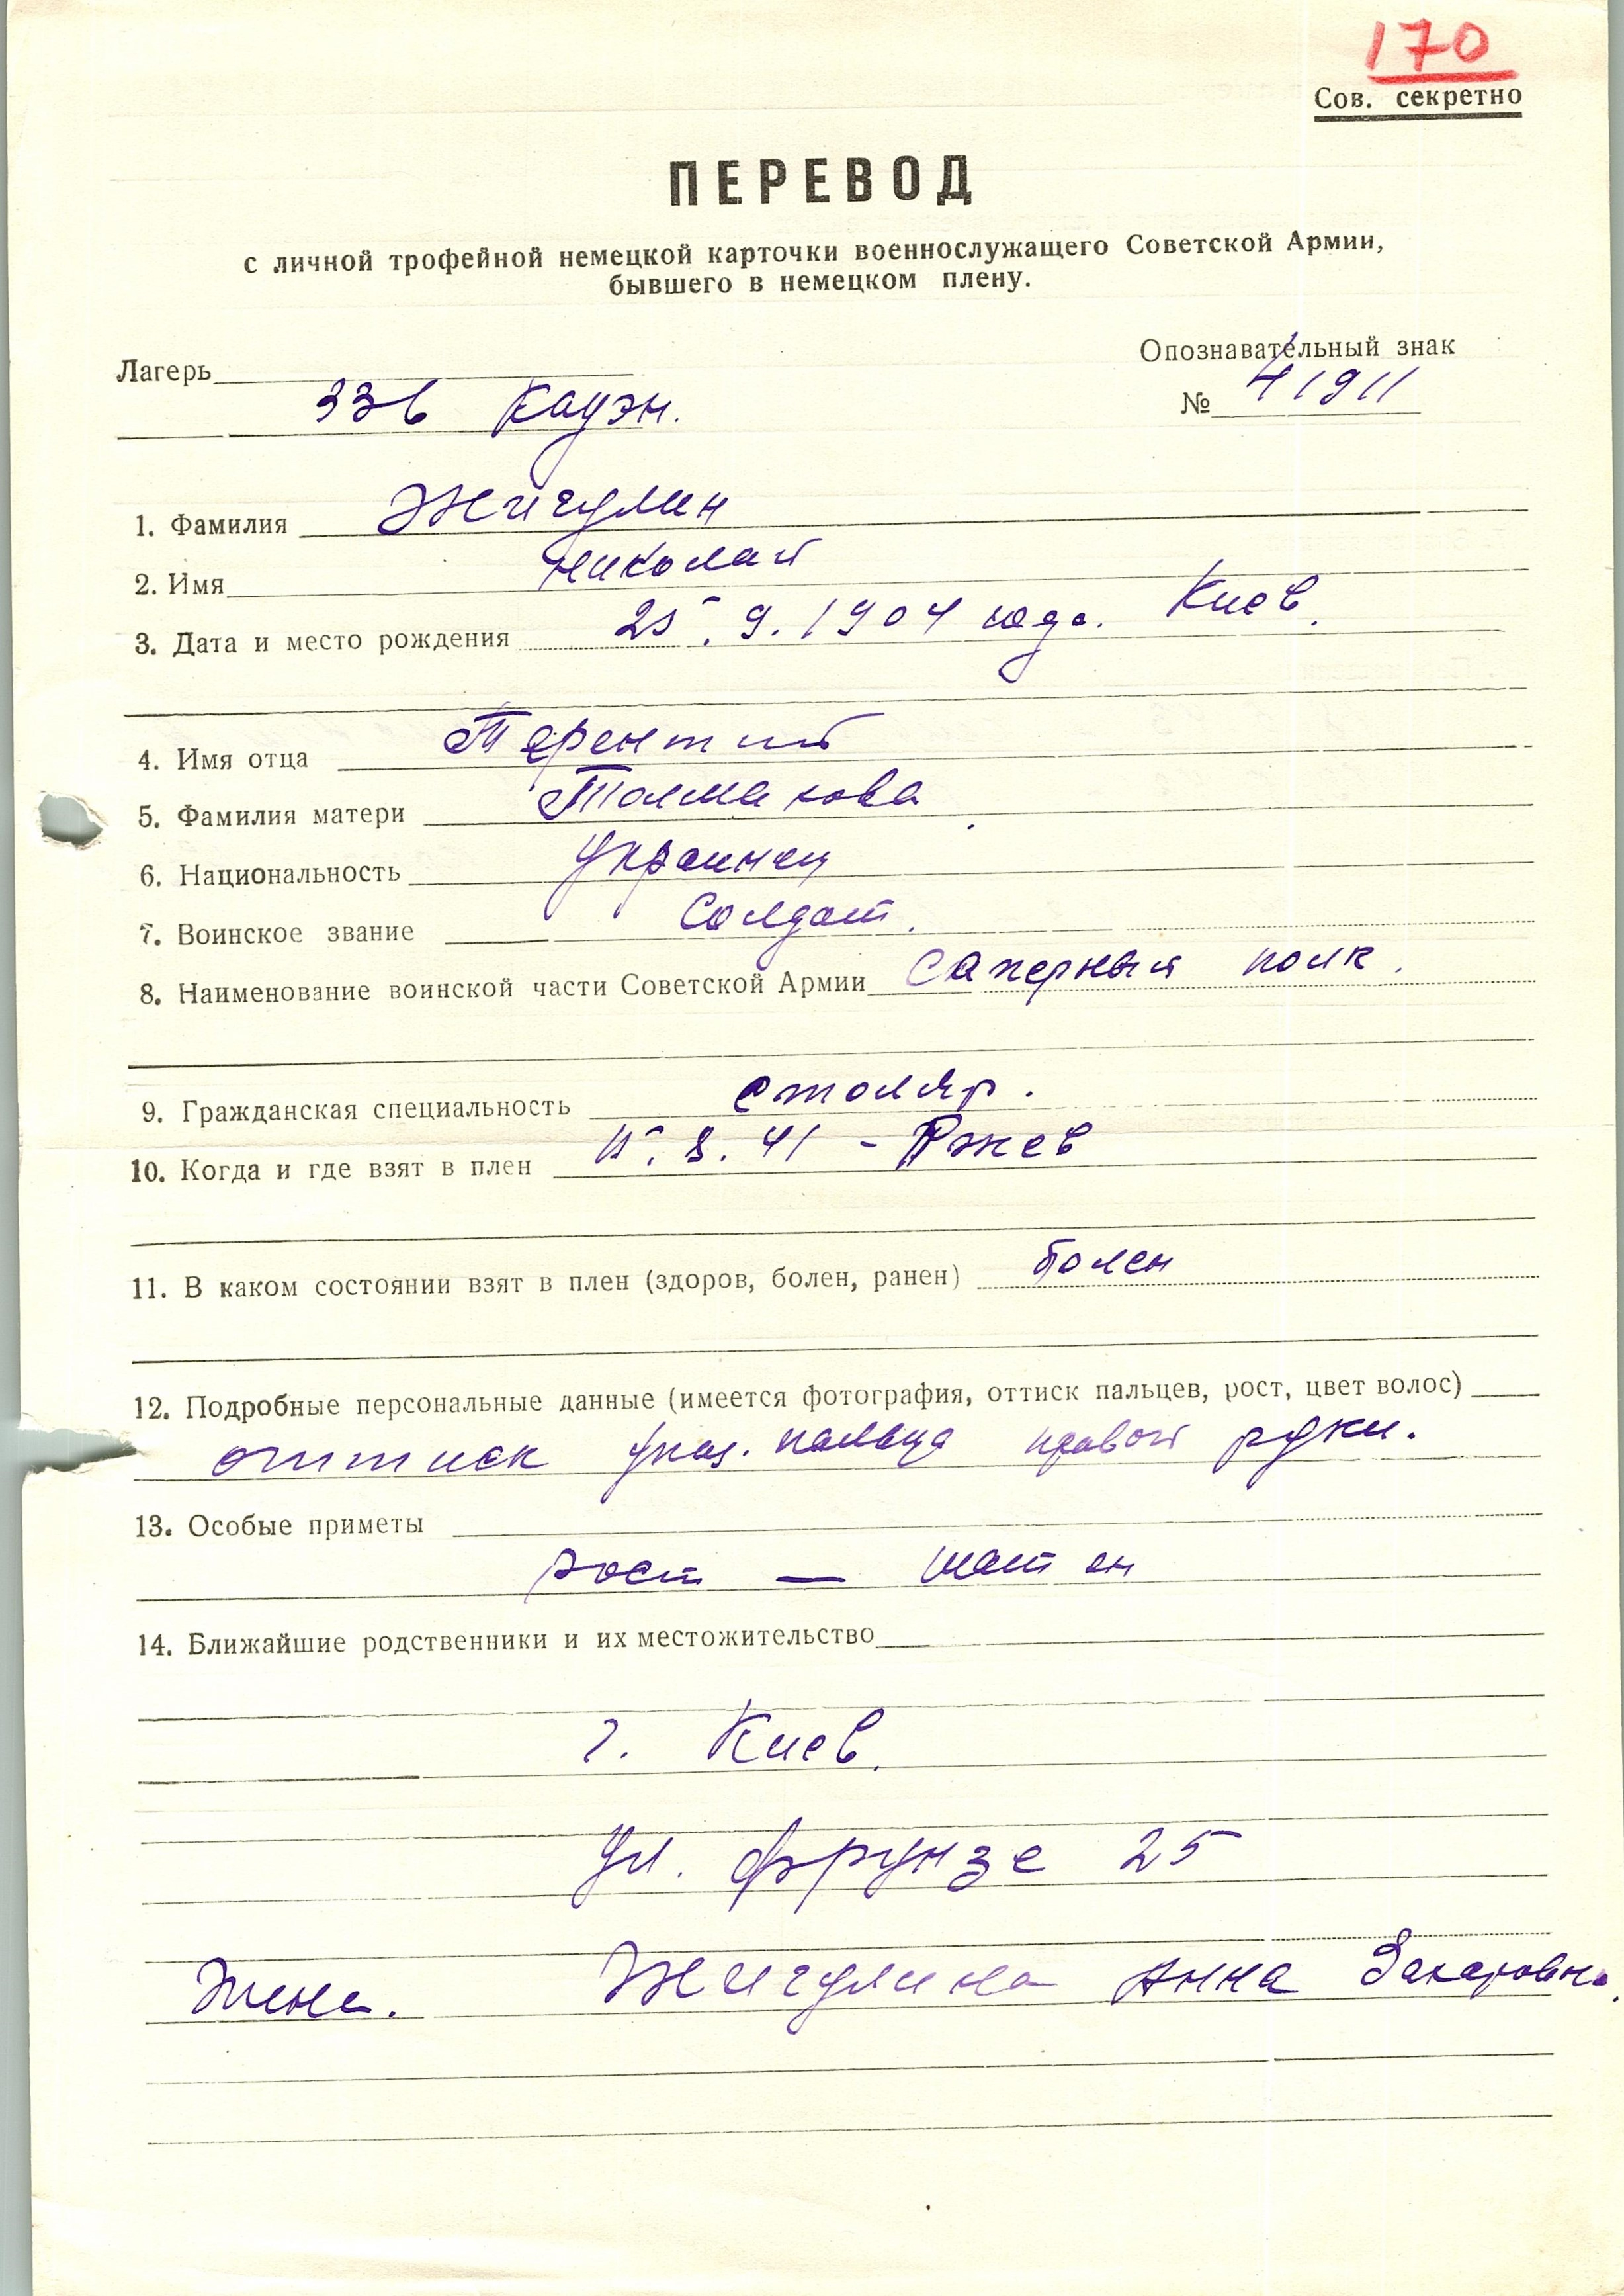 170
Сов. секретно
ПЕРЕВОД
с личной трофейной немецкой карточки военнослужащего Советской Армии,
бывшего в немецком плену.
Лагерь
Опознавательный знак
336 Кауэн.
№ 41911
1. Фамилия Жигулин
2. Имя Николай
3. Дата и место рождения 25.9.1904 года. Киев.
4. Имя отца Терентий
5. Фамилия матери Толмакова
6. Национальность Украинец
7. Воинское звание Солдат.
8. Наименование воинской части Советской Армии Саперный полк.
9. Гражданская специальность столяр.
10. Когда и где взят в плен 15.8.41 - Ржев
11. В каком состоянии взят в плен (здоров, болен, ранен) болен
12. Подробные персональные данные (имеется фотография, оттиск пальцев, рост, цвет волос)
оттиск указ. пальца правой руки.
13. Особые приметы
рост — шатен
14. Ближайшие родственники и их местожительство
г. Киев.
ул. Фрунзе 25
Жена. Жигулина Анна Захаровна.